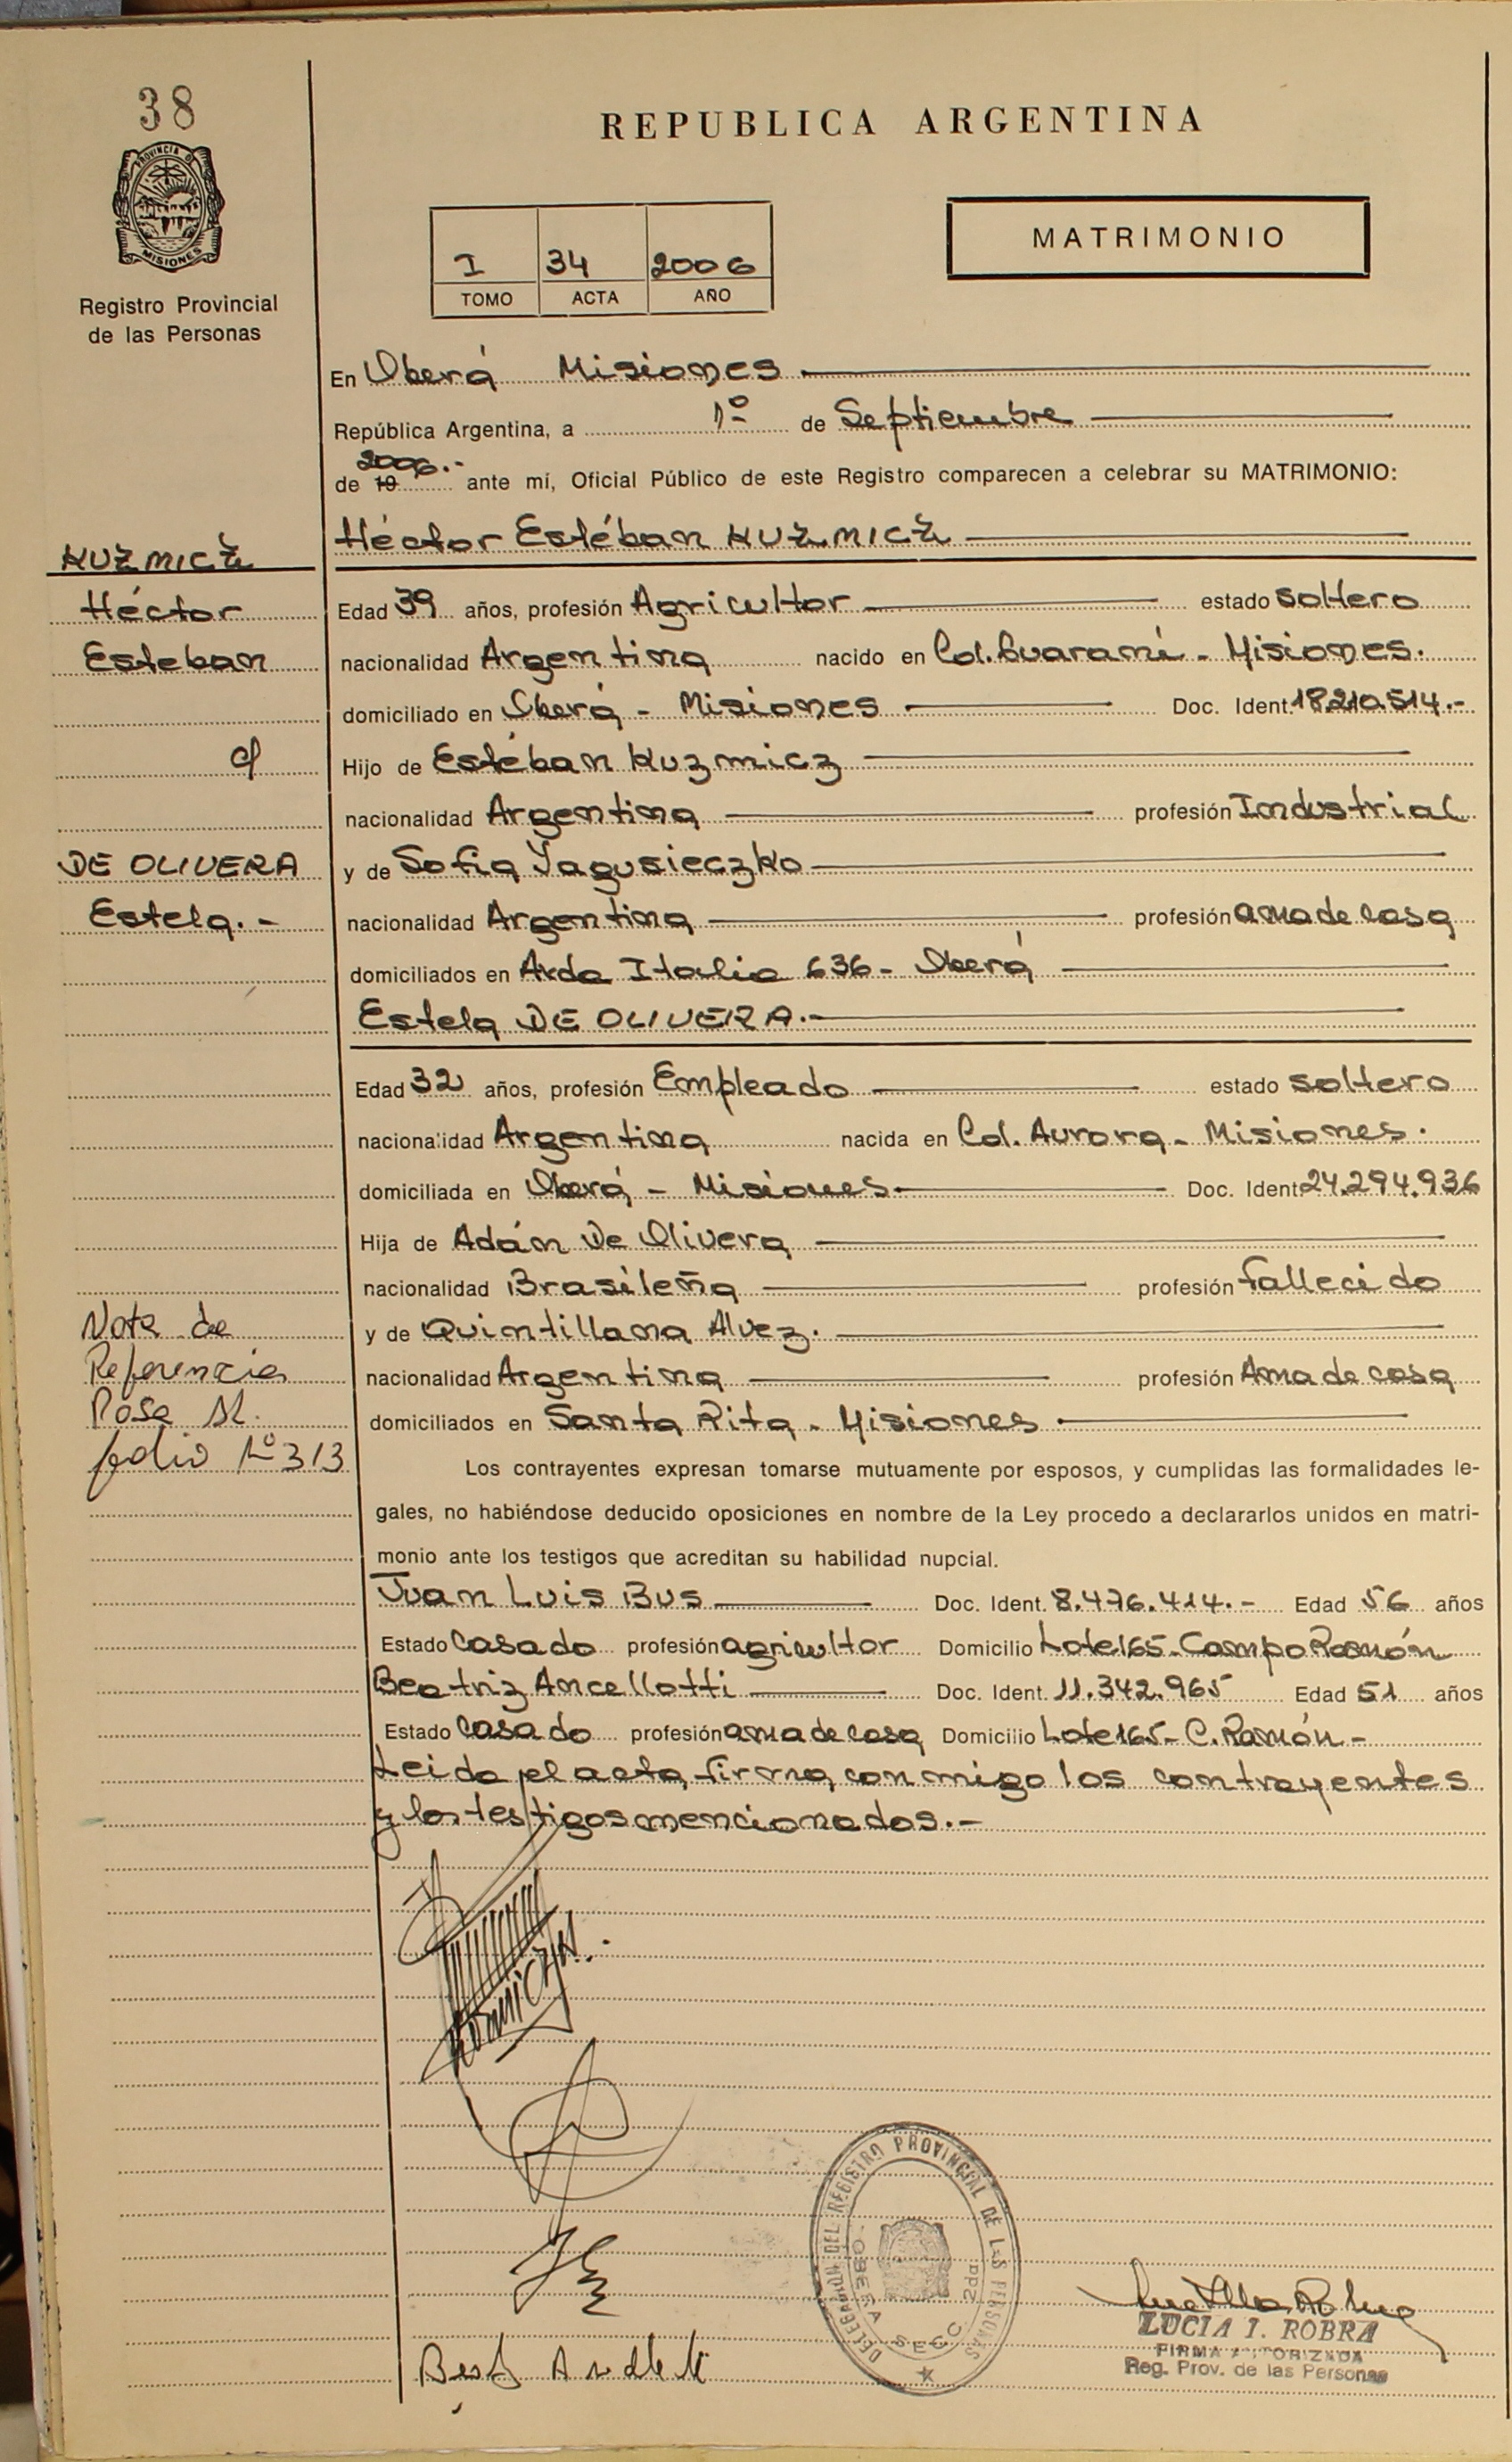 38
PROVINCIA D
MISIONES
Registro Provincial
de las Personas
REPUBLICA ARGENTINA
MATRIMONIO
I 34 2006
TOMO ACTA AÑO
En Oberá Misiones
República Argentina, a 1º de Septiembre
2006.-
de 19 ante mí, Oficial Público de este Registro comparecen a celebrar su MATRIMONIO:
Héctor Estéban KUZMICZ
KUZMICZ
Héctor
Esteban
c/
DE OLIVERA
Estela.-
Edad 39 años, profesión Agricultor estado soltero
nacionalidad Argentina nacido en Col. Guaraní - Misiones.
domiciliado en Oberá - Misiones Doc. Ident. 18.210.514.-
Hijo de Estéban Kuzmicz
nacionalidad Argentina profesión Industrial
y de Sofia Yagusieczko
nacionalidad Argentina profesión ama de casa
domiciliados en Avda Italia 636 - Oberá
Estela DE OLIVERA.-
Edad 32 años, profesión Empleado estado soltero
nacionalidad Argentina nacida en Col. Aurora - Misiones.
domiciliada en Oberá - Misiones Doc. Ident. 24.294.936
Hija de Adán De Olivera
nacionalidad Brasileña profesión fallecido
y de Quintillana Alvez.
nacionalidad Argentina profesión Ama de casa
domiciliados en Santa Rita - Misiones
Nota de
Referencia
Pasa al
folio Nº 313
Los contrayentes expresan tomarse mutuamente por esposos, y cumplidas las formalidades le-
gales, no habiéndose deducido oposiciones en nombre de la Ley procedo a declararlos unidos en matri-
monio ante los testigos que acreditan su habilidad nupcial.
Juan Luis Bus Doc. Ident. 8.476.414.- Edad 56 años
Estado Casado profesión agricultor Domicilio Lote 165 - Campo Ramón
Beatriz Ancellotti Doc. Ident. 11.342.965 Edad 51 años
Estado Casado profesión ama de casa Domicilio Lote 165 - C. Ramón -
Leida el acta, firma, con migo los contrayentes
y los testigos mencionados.-
DELEGACION DEL REGISTRO PROVINCIAL DE LAS PERSONAS
OBERA SECC. 2da
LUCIA I. ROBRA
FIRMA AUTORIZADA
Reg. Prov. de las Personas